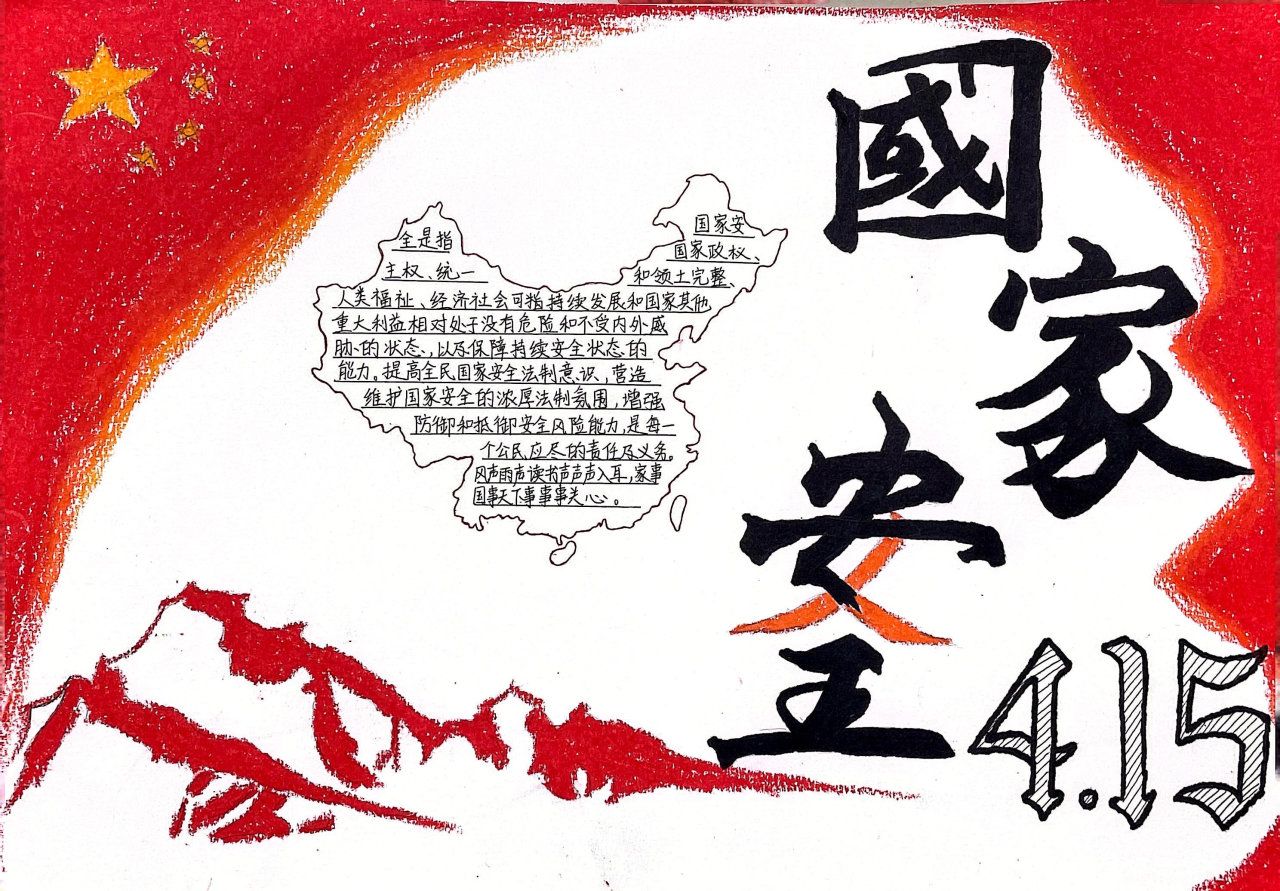 國
家
安
全
4.15
国家安
全是指
国家政权、
主权、统一
和领土完整、
人类福祉、经济社会可指持续发展和国家其他
重大利益相对处于没有危险和不受内外威
胁的状态，以及保障持续安全状态的
能力。提高全民国家安全法制意识，营造
维护国家安全的浓厚法制氛围，增强
防御和抵御安全风险能力，是每一
个公民应尽的责任及义务。
风声雨声读书声声声入耳，家事
国事天下事事事关心。